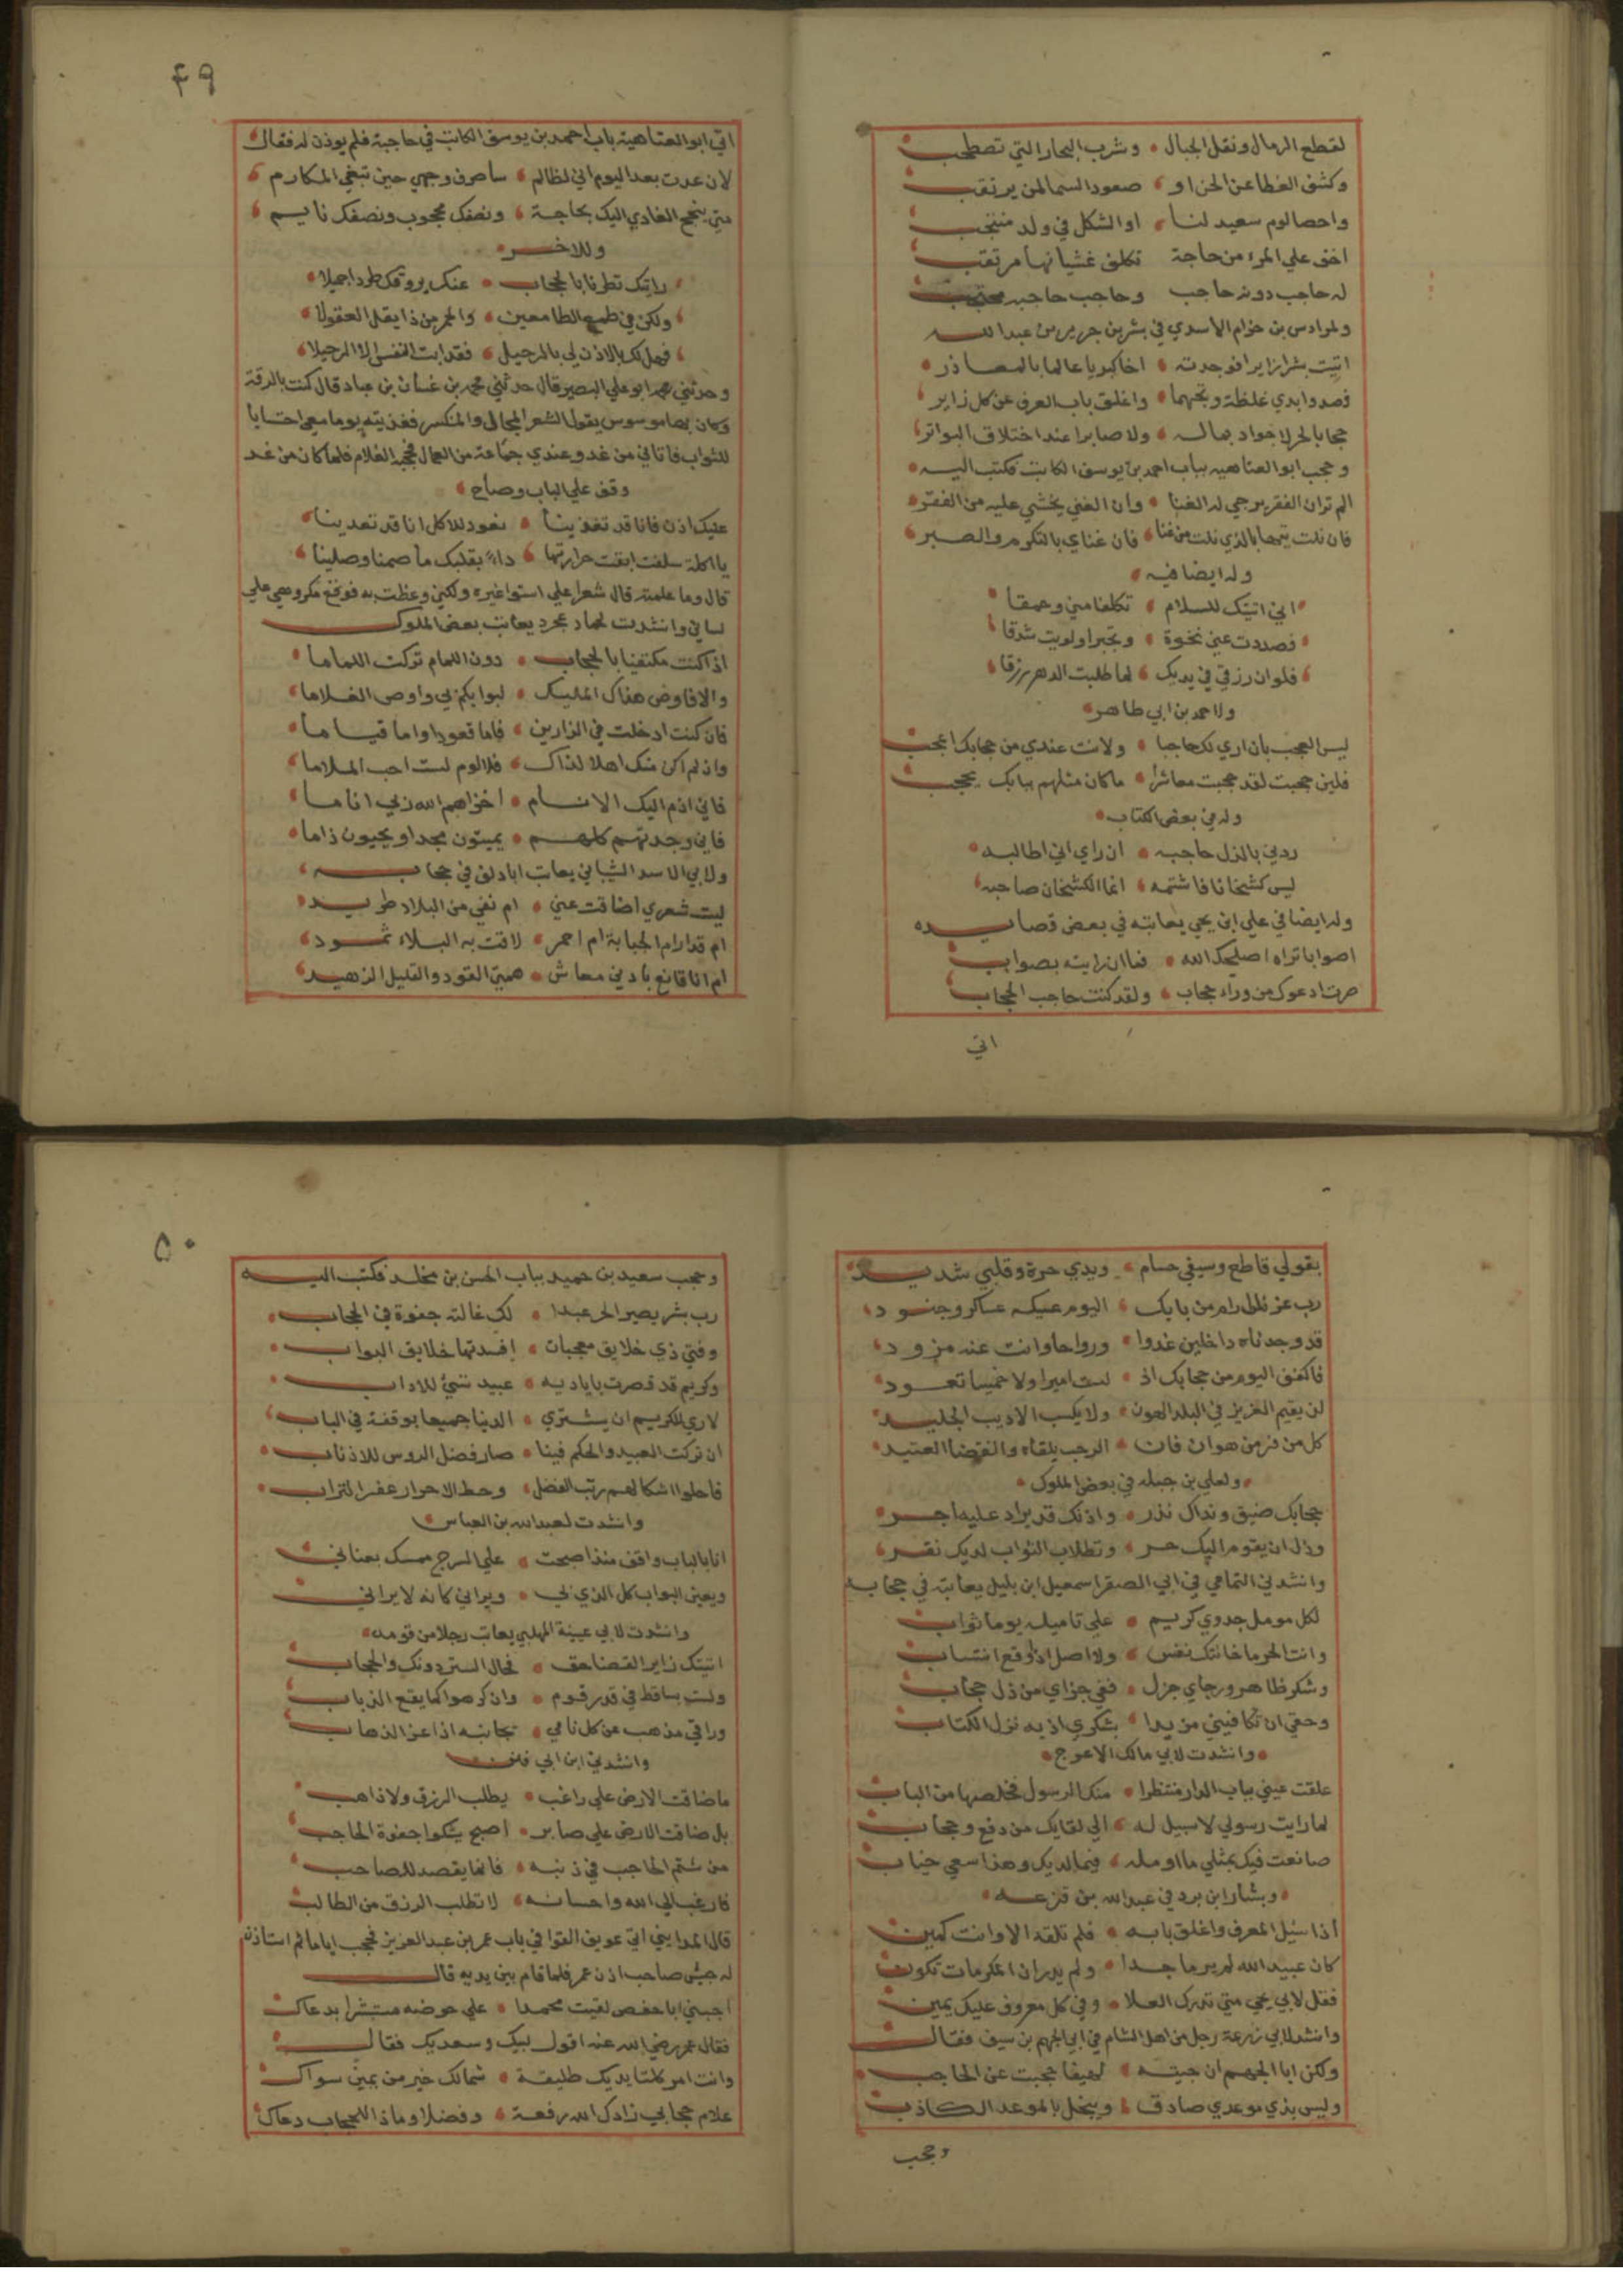 لقطع الرمال ونقل الجبال وشرب البحار التي تصطخب
وكشف الغطا عن الجن او صعود السما لمن يرتقب
واحصا لوم سعيد لنا او الثكل في ولد منتجب
اخف علي المرء من حاجة تكلف غشيانها مرتقب
له حاجب دونه حاجب وحاجب حاجبه محتجب
ولمرادس بن حزام الاسدي في بشر بن جرير بن عبد الله
اتيت بشرا زايرا فوجدته اخا كبريا عالما بالمعاذر
فصد وابدي غلظة وتجهما واغلق باب العرف عن كل زاير
حجابا لحر لا جواد بماله ولا صابرا عند اختلاف البواتر
وحجب ابو العتاهيه بباب احمد بن يوسف الكاتب فكتب اليه
الم تر ان الفقر يرجي له الغنا وان الغني يخشي عليه من الفقر
فان نلت تيها بالذي نلت من غنا فان غناي بالتكرم والصبر
وله ايضا فيه
اني اتيتك للسلام تكلفا مني وحمقا
فصددت عني نخوة وتجبرا ولويت شدقا
فلو ان رزقي في يديك لما طلبت الدهر رزقا
ولاحمد بن ابي طاهر
ليس العجب بان اري لك حاجبا ولانت عندي من حجابك اعجب
فلين حجبت لقد حجبت معاشرا ما كان مثلهم ببابك يحجب
وله في بعض الكتاب
ردني بالذل حاجبه ان راي اني اطالبه
ليس كشخانا فاشتمه انما الكشخان صاحبه
وله ايضا في علي ابن يحي يعاتبه في بعض قصايده
اصوابا تراه اصلحك الله فما ان رايته بصواب
صرت ادعوك من وراء حجاب ولقد كنت حاجب الحجاب
اتي
٤٩
اتي ابو العتاهية باب احمد بن يوسف الكاتب في حاجبة فلم يوذن له فقال
لان عدت بعد اليوم اني لظالم ساصرف وجهي حين تبغي المكارم
متي ينجح الغادي اليك بحاجة ونصفك محجوب ونصفك نايم
وللاخر
رايتك تطرفنا بالحجاب عنك بروقك طردا جميلا
ولكن في طمع الطامعين والحر من ذا يقل العقولا
فهل لك بالاذن لي بالرحيل فقد ابت النفس الا الرحيلا
وحدثني محمد ابو علي البصير قال حدثني محمد بن غسان بن عباد قال كنت بالرقة
وكان بها موسوس يقول الشعر المحال والمنكسر فغديته يوما معي احتسابا
للثواب فاتاني من غد وعندي جماعة من العمال فحجبه الغلام فلما كان من غد
وقف علي الباب وصاح
عليك اذن فانا قد تغدينا نعود للاكل انا قد تعدينا
يا اكلة سلفت ابقت حرارتها داء بقلبك ما صمنا وصلينا
قال وما علمته قال شعرا علي استوا غيره ولكني وعظت به فوقع مكروهي علي
لساني وانشدت لحماد عجرد يعاتب بعض الملوك
اذا كنت مكتفيا بالحجاب دون اللمام تركت اللماما
والا فاوص هداك المليك لبوابكم لي واوص الغلاما
فان كنت ادخلت في الزارين فاما قعودا واما قياما
وان لم اكن منك اهلا لذاك فلا لوم لست احب الملاما
فاني اذم اليك الانام اخزاهم الله ربي اناما
فاني وجدتهم كلهم يميتون مجدا ويحيون ذاما
ولابي الاسد الشيباني يعاتب ابا دلف في حجابه
ليت شعري اضاقت عني ام نفي من البلاد طريد
ام قدار ام الحبابة ام احمر لاقت به البلاء ثمود
ام انا قانع بادني معاش همتي القود والقليل الزهيد
بقولي قاطع وسيفي حسام ويدي حرة وقلبي شديد
رب عز نالك رام من بابك اليوم عليه عساكر وجنود
قد وجدناه داخلين غدوا ورواحا وانت عنه مزود
فاكفف اليوم من حجابك اذ لست اميرا ولا خميسا تعود
لن يقيم العزيز في البلد الهون ولا يكسب الاديب الجليد
كل من فر من هوان فان الرحب يلقاه والفضا العتيد
ولعلي بن جبله في بعض الملوك
حجابك ضيق ونداك نذر واذنك قد يراد عليه اجر
وذل ان يقوم اليك حر وتطلاب الثواب لديك نقر
وانشدني التمامي في ابي الصقر اسمعيل ابن بليل يعاتبه في حجابه
لكل مومل جدوي كريم علي تاميله يوما ثواب
وانت الحر ما خانتك نفس ولا اصل اذا وقع انتساب
وشكر ظاهر ورجاي جزل ففي جزاي من ذل حجاب
وحقي ان تكافيني مزيدا بشكري اذ به نزل الكتاب
وانشدت لابي مالك الاعرج
علقت عيني بباب الدار منتظرا منك الرسول فخلصها من الباب
لما رايت رسولي لا سبيل له الي لقايك من دفع وحجاب
صانعت فيك بمثلي ما اومله فيما لديك وهذا سعي خياب
وبشار ابن برد في عبد الله بن قزعه
اذا سيل المعرف واغلق بابه فلم تلقه الا وانت كمين
كان عبيد الله لم ير ماجدا ولم يدر ان المكرمات تكون
فقل لابي يحي متي تدرك العلا وفي كل معروف عليك يمين
وانشد لابي زرعة رجل من اهل الشام في ابي الجهم بن سيف فقال
ولكن ابا الجهم ان جيته لهيفا حجبت عن الحاجب
وليس بذي موعدي صادق ويبخل بالموعد الكاذب
وحجب
٥٠
وحجب سعيد بن حميد بباب الحسن بن مخلد فكتب اليه
رب بشر يصير الحر عبدا لك غالته جفوة في الحجاب
وفتي ذي خلايق معجبات افسدتها خلايق البواب
وكريم قد قصرت باياديه عبيد تسئ للاداب
لا اري للكريم ان يشتري الدنيا جميعا بوقفة في الباب
ان تركت العبيد والحكم فينا صار فضل الروس للاذناب
فاحلوا اشكالهم رتب الفضل وحط الاحرار عفر التراب
وانشدت لعبد الله بن العباس
انا بالباب واقف منذ اصبحت علي السرج ممسك بعناني
وبعين البواب كل الذي بي ويراني كانه لا يراني
وانشدت لابي عيينة المهلبي يعاتب رجلا من قومه
اتيتك زايرا لقضا حق فحال الستر دونك والحجاب
ولست بساقط في قدر قوم وان كرهوا كما يقع الذباب
وراي مذهب عن كل نامي بجانبه اذا عز الذهاب
وانشدني ابن ابي فنن
ما ضاقت الارض علي راغب يطلب الرزق ولا ذاهب
بل ضاقت الارض علي صابر اصبح يشكوا جفوة الحاجب
من شتم الحاجب في ذنبه فانما يقصد للصاحب
فارغب الي الله واحسانه لا تطلب الرزق من الطالب
قال المدايني اتي عويف القوافي باب عمر بن عبد العزيز فحجب اياما ثم استاذن
له حبيش صاحب اذن عمر فلما قام بين يديه قال
اجبني ابا حفص لقيت محمدا علي حوضه مستبشرا بدعاك
فقال عمر رضي الله عنه اقول لبيك وسعديك فقال
وانت امر كلتا يديك طليقة شمالك خير من يمين سواك
علام حجابي زادك الله رفعة وفضلا وماذا للحجاب دعاك